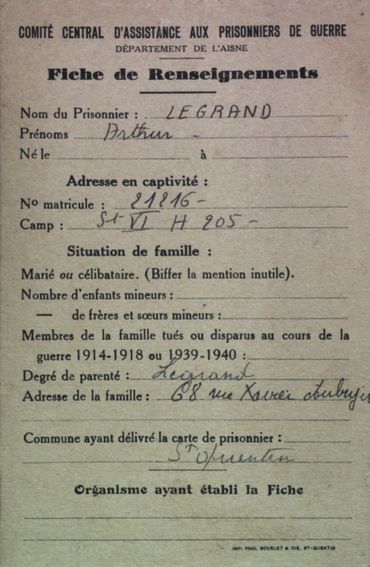 COMITÉ CENTRAL D'ASSISTANCE AUX PRISONNIERS DE GUERRE
DÉPARTEMENT DE L'AISNE
Fiche de Renseignements
Nom du Prisonnier : LEGRAND
Prénoms Arthur -
Né le à
Adresse en captivité :
No matricule : 21216 -
Camp : St VI H 205 -
Situation de famille :
Marié ou célibataire. (Biffer la mention inutile).
Nombre d'enfants mineurs :
— de frères et sœurs mineurs :
Membres de la famille tués ou disparus au cours de la
guerre 1914-1918 ou 1939-1940 :
Degré de parenté : Legrand
Adresse de la famille : 68 rue Xavier
Commune ayant délivré la carte de prisonnier :
St Quentin
Organisme ayant établi la Fiche
IMP. PAUL BOURLET & CIE, ST-QUENTIN